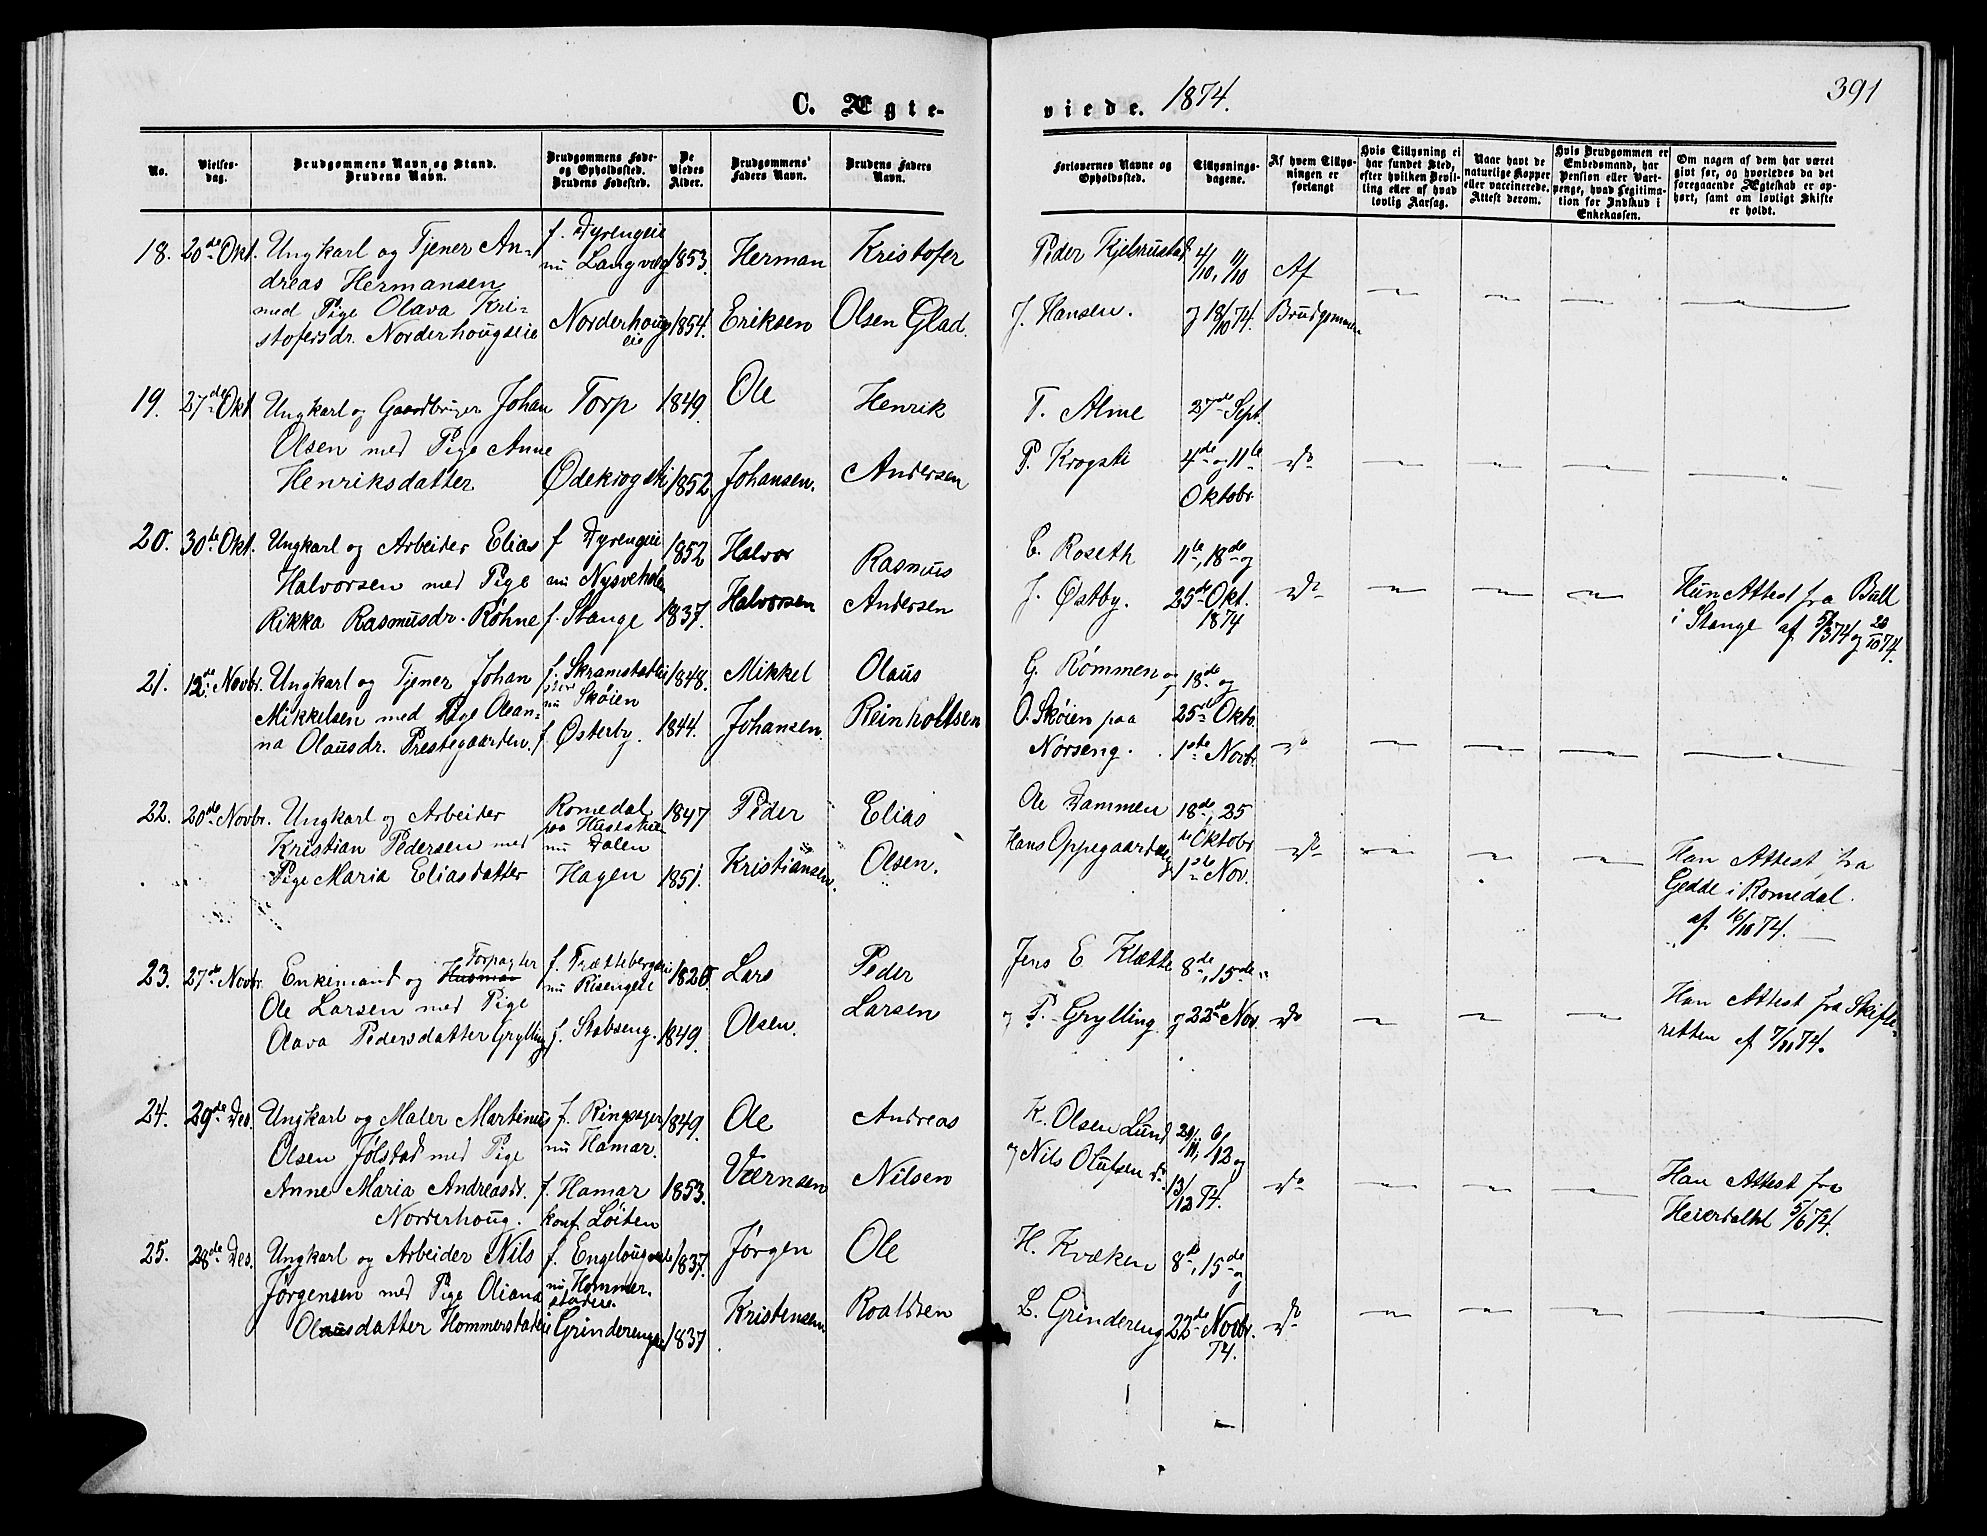 C. Ægte-
viede. 1874.
391
No.
Vielses-
dag.
Brudgommens Navn og Stand.
Brudens Navn.
Brudgommens Føde-
og Opholdssted.
Brudens Fødested.
De
Viedes
Alder.
Brudgommens'
Faders Navn.
Brudens Faders
Navn.
Forlovernes Navne og
Opholdssted.
Tillysnings-
dagene.
Af hvem Tillys-
ningen er
forlangt
Hvis Tillysning ei
har fundet Sted,
efter hvilken Bevil-
ling eller af hvad
lovlig Aarsag.
Naar havt de
naturlige Kopper
eller vaccinerede.
Attest derom.
Hvis Brudgommen er
Embedsmand, har
Pension eller Vart-
penge, hvad Legitima-
tion for Indskud i
Enkekassen.
Om nogen af dem har været
gift før, og hvorledes da det
foregaaende Ægteskab er op-
hørt, samt om lovligt Skifte
er holdt.
18. 20de Okt. Ungkarl og Tjener An-
dreas Hermansen
med Pige Olava Kri-
stofersdr. Norderhougseie
f. Dyrengeie
nu Langvæg
Norderhoug
eie
1853.
1854.
Herman
Eriksen
Kristofer
Olsen Glad.
Peder Kjelsrustad
J. Hansen.
4/10, 11/10
og 18/10 74.
Af
Brudgommen
19. 27de Okt. Ungkarl og Gaardbruger Johan
Olsen med Pige Anne
Henriksdatter
Torp
Ødekrogsti
1849.
1852
Ole
Johansen.
Henrik
Andersen
T. Alme
P. Krogsti
27de Sept.
4de og 11te
Oktobr.
Do
20. 30te Okt. Ungkarl og Arbeider Elias
Halvorsen med Pige
Rikka Rasmusdr. Røhne
f Dyrengeie
nu Nysveholen
f. Stange
1852
1837.
Halvor
Halvorsen
Rasmus
Andersen
C. Roseth
J. Østby.
11te, 18de og
25de Okt.
1874
Do
Hun Attest fra Bull
i Stange af 5/3 74 og 20/10 74.
21. 12te Novbr. Ungkarl og Tjener Johan
Mikkelsen med Pige Olean-
na Olausdr. Prestegaarden.
f. Skramstadeie
nu Skøien
f. Østerby.
1848.
1844.
Mikkel
Johansen.
Olaus
Reinholtsen
G. Rømmen og
O. Skøien paa
Nørseng.
18de og
25de Okto.
1ste Novbr.
Do
22. 20de Novbr. Ungkarl og Arbeider
Kristian Pedersen med
Pige Maria Eliasdatter
Romedal
nu Dalen
Hagen
1847
1851.
Peder
Kristiansen.
Elias
Olsen.
Ole Dammen
Hans Oppegaard
18de, 25
de Oktobr
1ste Nov.
Do
Han Attest fra
Gedde i Romedal.
af 16/10 74.
23. 27de Novbr. Enkemand og Husman Forpagter
Ole Larsen med Pige
Olava Pedersdatter Grylling
f. Trættebergeie
nu Risengeie
f. Stobseng.
1820.
1849.
Lars
Olsen.
Peder
Larsen
Jens E. Klætte
og P. Grylling
8de, 15de
og 22de Nov.
Do
Han Attest fra Skifte-
retten af 7/11 74.
24. 29de Des. Ungkarl og Maler Martinus
Olsen Jølstad med Pige
Anne Maria Andreasdr.
Norderhoug.
f. Ringsager
nu Hamar.
f. Hamar
konf. Løiten
1849.
1853.
Ole
Værnsen
Andreas
Nilsen
K. Olsen Lund
og Nils Olufsen do.
29/11, 6/12 og
13/12 74.
Do
Han Attest fra
Heierdahl 5/6 74.
25. 28de Des. Ungkarl og Arbeider Nils
Jørgensen med Pige Oliana
Olausdatter Hommerstadeie
nu Hommer-
stadeie.
Grinderengeie
1837.
1837
Jørgen
Kristensen.
Ole
Roaldsen
H. Kvæken
L. Grindereng
8de, 15de
og
22de Novbr.
74.
Do